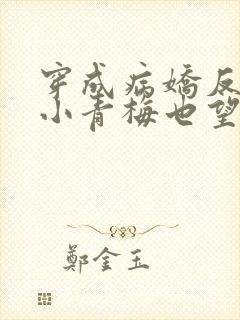 穿成病嬌反
小青梅也望
鄭金玉